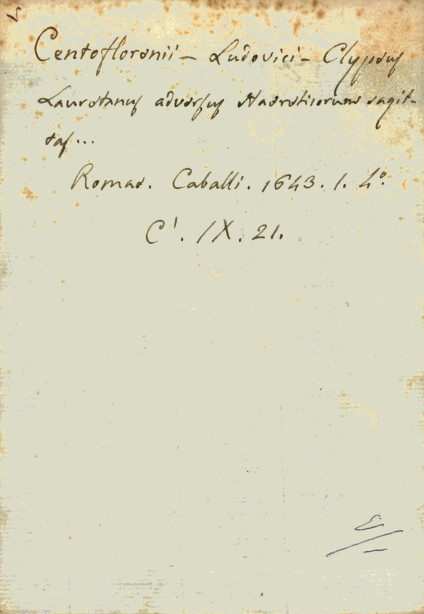 Centoflorenii - Ludovici - Clypeus
Lauretanus adversus Haereticorum sagit-
tas...
Romae. Caballi. 1643. 1. 4º.
C¹. IX. 21.